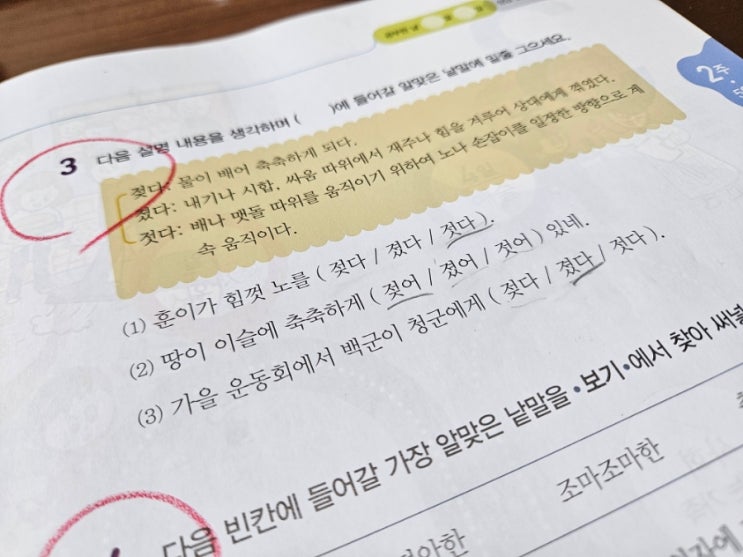 2주
3 다음 설명 내용을 생각하며 ( )에 들어갈 알맞은 낱말에 밑줄 그으세요.
젖다: 물이 배어 축축하게 되다.
졌다: 내기나 시합, 싸움 따위에서 재주나 힘을 겨루어 상대에게 꺾였다.
젓다: 배나 맷돌 따위를 움직이기 위하여 노나 손잡이를 일정한 방향으로 계
속 움직이다.
(1) 훈이가 힘껏 노를 ( 젖다 / 졌다 / 젓다 ).
(2) 땅이 이슬에 축축하게 ( 젖어 / 졌어 / 젓어 ) 있네.
(3) 가을 운동회에서 백군이 청군에게 ( 젖다 / 졌다 / 젓다 ).
다음 빈칸에 들어갈 가장 알맞은 낱말을 •보기•에서 찾아 써넣
조마조마한